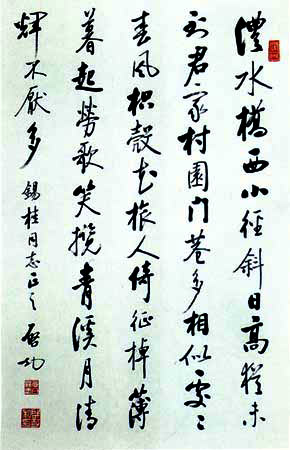 澧水橋西小徑斜日高猶未
到君家村園門巷多相似處〻
春風枳殼花旅人倚征棹薄
暮起勞歌笑攬青溪月清
輝不厭多 錫桂同志正之 启功